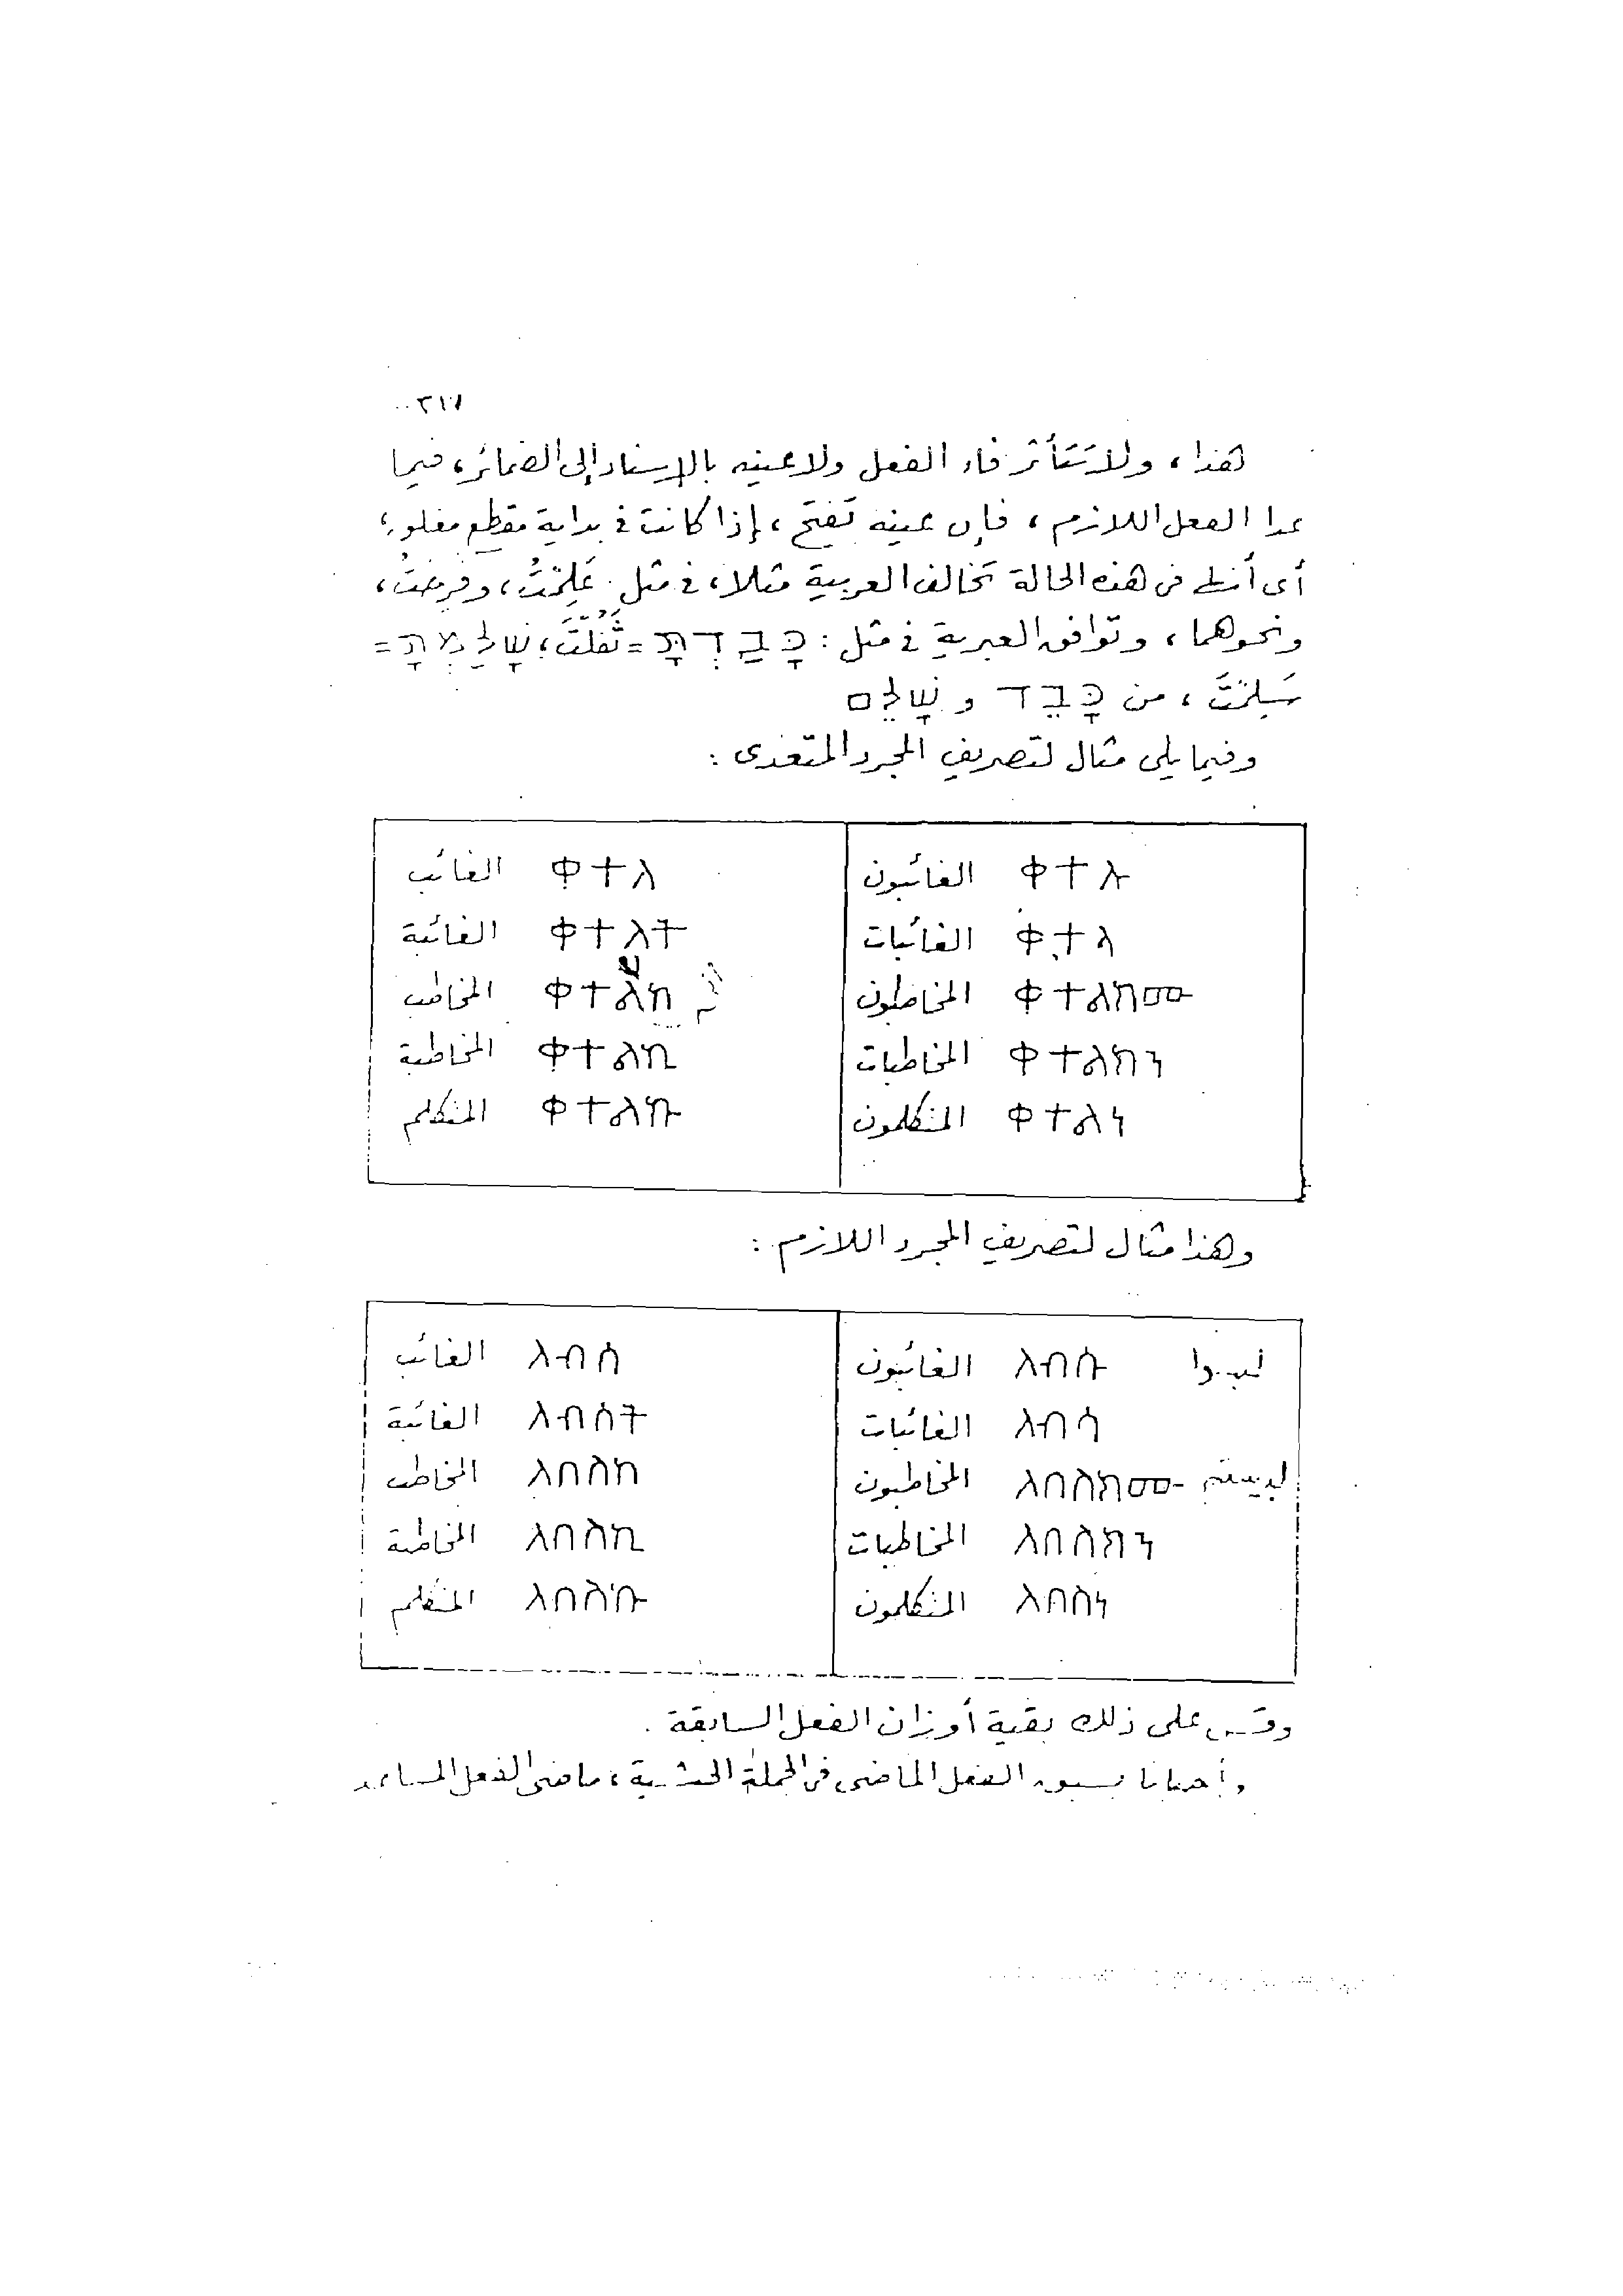 ٣١٧
هذا، ولا تَتَأثر فاء الفعل ولا عينه بالإسناد إلى الضمائر، فيما
عدا الفعل اللازم، فإن عينه تفتح، إذا كانت في بداية مقطع مغلق،
أى أنها فى هذه الحالة تخالف العربية مثلا، فى مثل: عَلِمْتُ، وفرِحْتُ،
ونحوهما، وتوافق العبرية فى مثل: כָּבַדְתָּ = ثَقُلْتَ، שָׁלַמְתָּ =
سَلِمْتَ، من כָּבֵד و שָׁלֵם
وفيما يلى مثال لتصريف المجرد المتعدى:
ቀተሉ الغائبون ቀተለ الغائب
ቀተላ الغائبات ቀተለት الغائبة
ቀተልክሙ المخاطبون ቀተልከ المخاطب
ቀተልክን المخاطبات ቀተልኪ المخاطبة
ቀተልነ المتكلمون ቀተልኩ المتكلم
وهذا مثال لتصريف المجرد اللازم:
ለብሱ الغائبون ለብሰ الغائب
ለብሳ الغائبات ለብሰት الغائبة
ለበስክሙ المخاطبون ለበስከ المخاطب
ለበስክን المخاطبات ለበስኪ المخاطبة
ለበስነ المتكلمون ለበስኩ المتكلم
وقس على ذلك بقية أوزان الفعل السابقة.
وأحيانا يسبق الفعل الماضى فى الجملة الحبشية، ماضى الفعل المساعد